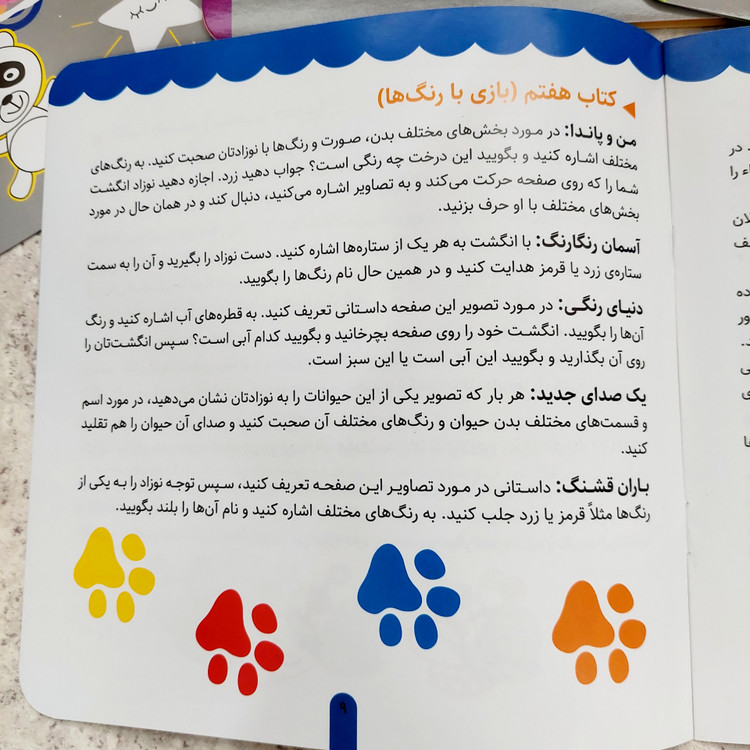 کتاب هفتم (بازی با رنگ‌ها)
من و پاندا: در مورد بخش‌های مختلف بدن، صورت و رنگ‌ها با نوزادتان صحبت کنید. به رنگ‌های
مختلف اشاره کنید و بگویید این درخت چه رنگی است؟ جواب دهید زرد. اجازه دهید نوزاد انگشت
شما را که روی صفحه حرکت می‌کند و به تصاویر اشاره می‌کنید، دنبال کند و در همان حال در مورد
بخش‌های مختلف با او حرف بزنید.
آسمان رنگارنگ: با انگشت به هر یک از ستاره‌ها اشاره کنید. دست نوزاد را بگیرید و آن را به سمت
ستاره‌ی زرد یا قرمز هدایت کنید و در همین حال نام رنگ‌ها را بگویید.
دنیای رنگی: در مورد تصویر این صفحه داستانی تعریف کنید. به قطره‌های آب اشاره کنید و رنگ
آن‌ها را بگویید. انگشت خود را روی صفحه بچرخانید و بگویید کدام آبی است؟ سپس انگشت‌تان را
روی آن بگذارید و بگویید این آبی است یا این سبز است.
یک صدای جدید: هر بار که تصویر یکی از این حیوانات را به نوزادتان نشان می‌دهید، در مورد اسم
و قسمت‌های مختلف بدن حیوان و رنگ‌های مختلف آن صحبت کنید و صدای آن حیوان را هم تقلید
کنید.
باران قشنگ: داستانی در مورد تصاویر این صفحه تعریف کنید، سپس توجه نوزاد را به یکی از
رنگ‌ها مثلاً قرمز یا زرد جلب کنید. به رنگ‌های مختلف اشاره کنید و نام آن‌ها را بلند بگویید.
۹